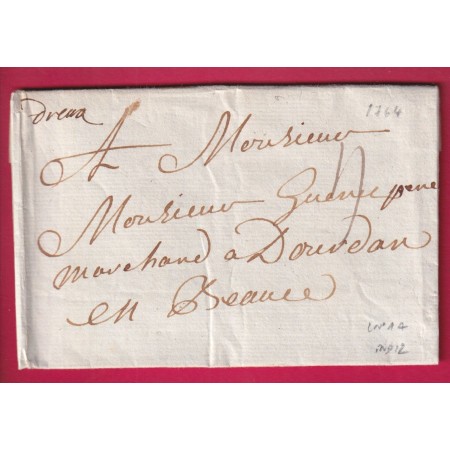 Dreux
1764
A Monsieur
Monsieur Guenee pere
marchand a Dourdan
en Beauce